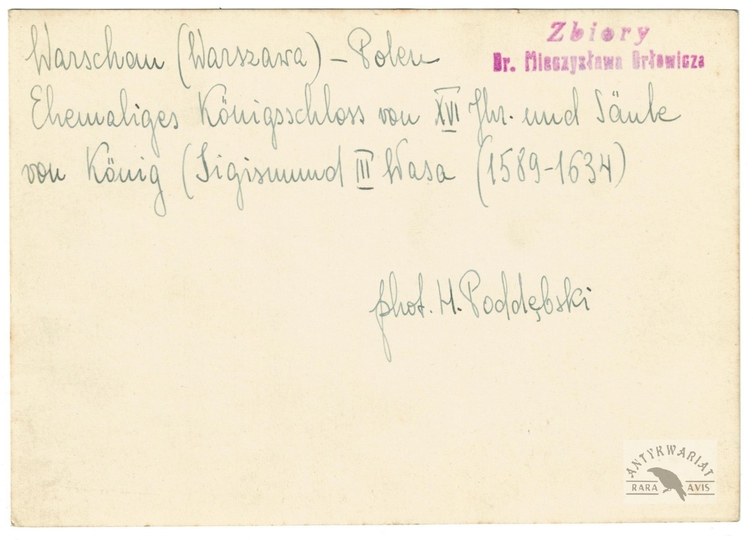 Zbiory
Dr. Mieczysława Orłowicza
Warschau (Warszawa) - Polen
Ehemaliges Königsschloss von XVI Jhr. und Säule
von König (Sigismund III Wasa (1589-1634)
phot. H. Poddębski
ANTYKWARIAT
RARA AVIS